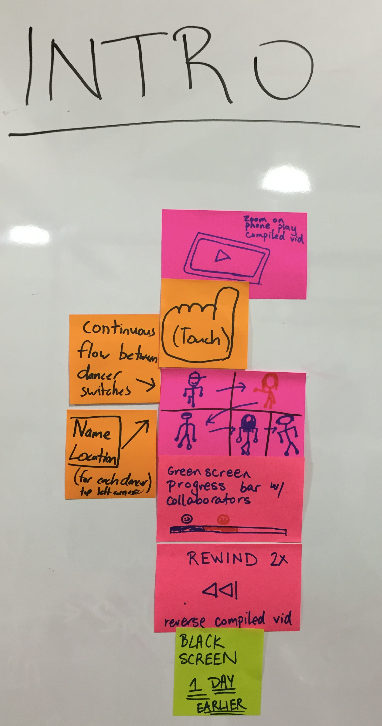 INTRO
Zoom on
phone play
compiled vid
(Touch)
Continuous
flow between
dancer
switches
Name
Location
(for each dancer)
top left corner
Green screen
progress bar w/
collaborators
REWIND 2X
reverse compiled vid
BLACK
SCREEN
1 DAY
EARLIER